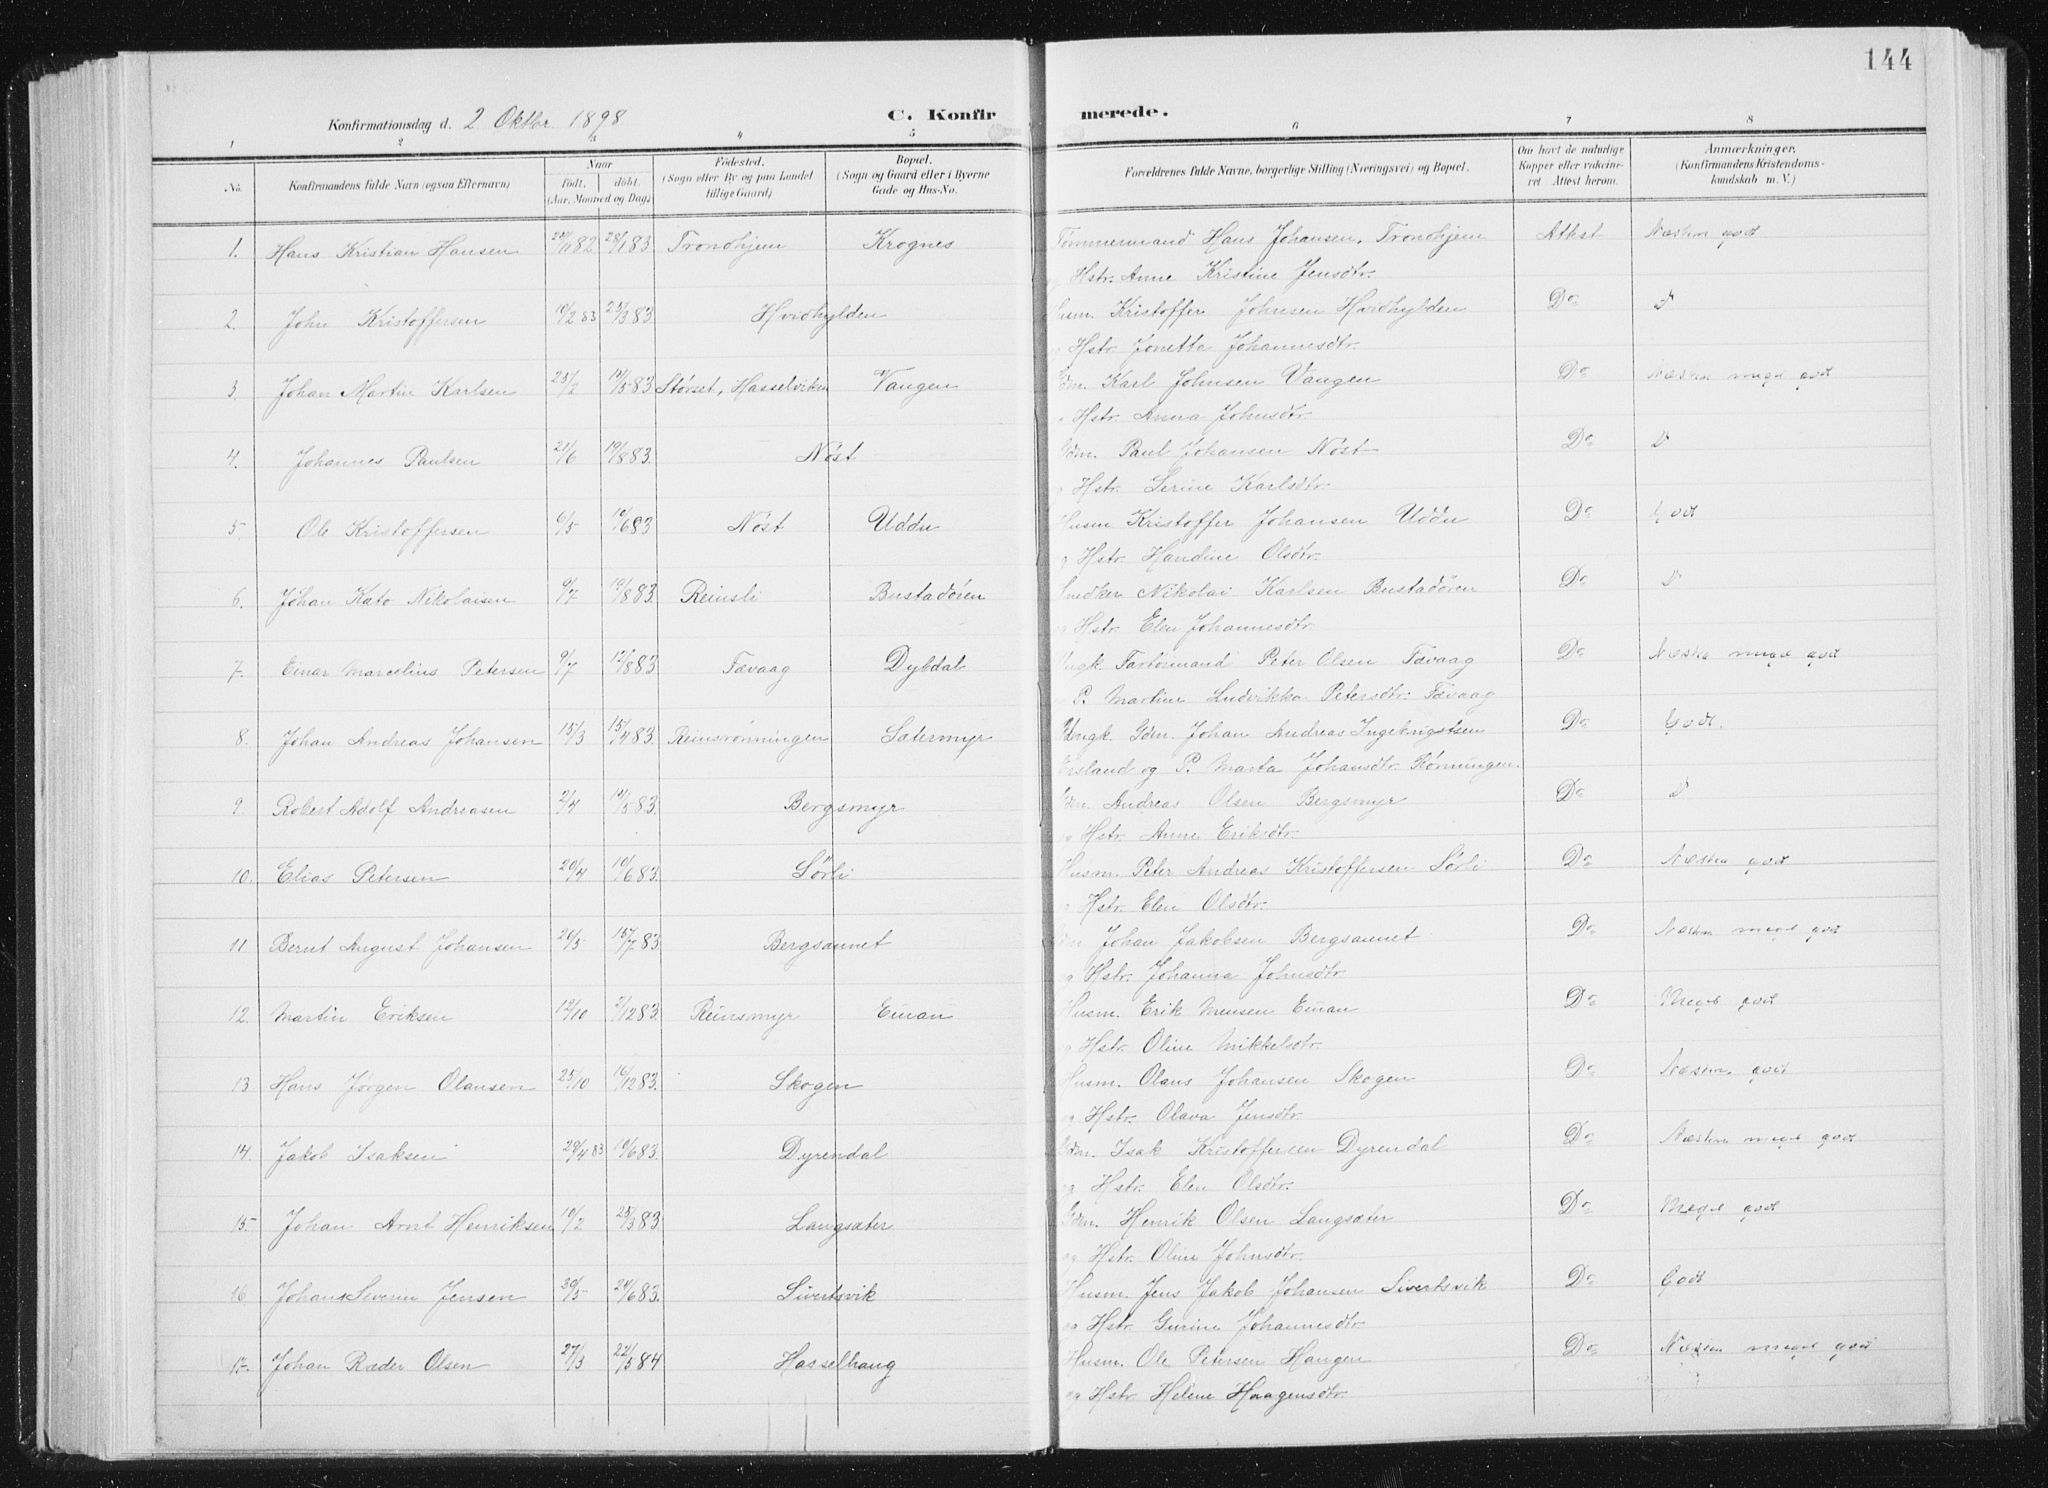 144
Konfirmationsdag d. 2 Oktbr. 1898
C. Konfir merede.
1 2 3 4 5 6 7 8
No. Konfirmandens fulde Navn (ogsaa Efternavn) Naar født. døbt. (Aar, Maaned og Dag) Fødested. (Sogn eller By og paa Landet tillige Gaard) Bopæl. (Sogn og Gaard eller i Byerne Gade og Hus-No. Forældrenes fulde Navne, borgerlige Stilling (Næringsvei) og Bopæl. Om havt de naturlige Kopper eller vaccineret. Attest herom. Anmærkninger. (Konfirmandens Kristendomskundskab m. V.)
1. Hans Kristian Hansen 82 28/1 83 Trondhjem Krognes Tømmermand Hans Johansen, Trondhjem Attest Næsten godt
Hstr. Anne Kristine Jensdtr.
2. John Kristoffersen 10/2 83 25/3 83 Hvidhylden Husm. Kristoffer Johnsen Hvidhylden Do D
Hstr. Jonetta Johannesdtr.
3. Johan Martin Karlsen 25/2 14/5 83 Størset, Hasselviken Vangen Gdm. Karl Johnsen Vangen Do Næsten meget godt
Hstr. Anna Johnsdtr.
4. Johannes Paulsen 21/6 19/8 83 Nøst Gdm. Paul Johansen Nøst Do D
Hstr. Serine Karlsdtr.
5. Ole Kristoffersen 6/5 10/6 83 Nøst Uddu Husm Kristoffer Johansen Uddu Do Godt
og Hstr. Handine Olsdtr.
6. Johan Kato Nikolaisen 9/7 19/8 83 Reinsli Bustadören Snedker Nikolai Karlsen Bustadören Do D
Hstr. Elen Johannesdtr.
7. Einar Marcelius Petersen 9/7 12/8 83 Fævaag Dybdal Ungk Peter Olsen Fævaag Do Næsten meget godt
P. Martine Ludvikka Petersdtr. Fævaag
8. Johan Andreas Johansen 15/3 15/4 83 Reinsrønningen Sætermyr Ungk. Gdm. Johan Andreas Ingebrigtsen Do Godt.
og P. Marta Johansdtr. Rønningen.
9. Robert Adolf Andreasen 2/4 14/5 83 Bergsmyr Gdm. Andreas Olsen Bergsmyr Do D
og Hstr. Anne Eriksdtr.
10. Elias Petersen 20/4 10/6 83. Sørli Husm. Peter Andreas Kristoffersen Sørli Do Næsten godt
Hstr. Elen Olsdtr.
11 Bernt August Johansen 26/5 15/7 83 Bergsaunet Gdm Johan Jakobsen Bergsaunet Do Næsten meget godt
og Hstr. Johanna Johnsdtr
12. Martin Eriksen 12/10 2/12 83. Reinsmyr Einan Husm. Erik Monsen Einan Do Meget godt
og Hstr. Oline Mikkelsdtr.
13 Hans Jørgen Olausen 25/10 16/12 83. Skogen Husm. Olaus Johansen Skogen Do Næsten godt
og Hstr. Olava Jensdtr.
14. Jakob Isaksen 29/4 83 10/6 83. Dyrendal Gdm. Isak Kristoffersen Dyrendal Do Næsten meget godt
og Hstr. Elen Olsdtr.
15. Johan Arnt Henriksen 10/2 25/3 83 Langsæter Gdm. Henrik Olsen Langsæter Do Meget godt
og Hstr. Oline Johnsdtr.
16 Johan Severin Jensen 30/5 24/6 83. Sivertsvik Husm. Jens Jakob Johansen Sivertsvik Do Godt
og Hstr. Gurine Johannesdtr.
17. Johan Ræder Olsen 27/3 22/5 84 Hasselhaug Husm. Ole Petersen Haugen Do Næsten meget godt
og Hstr. Helene Haagensdtr.